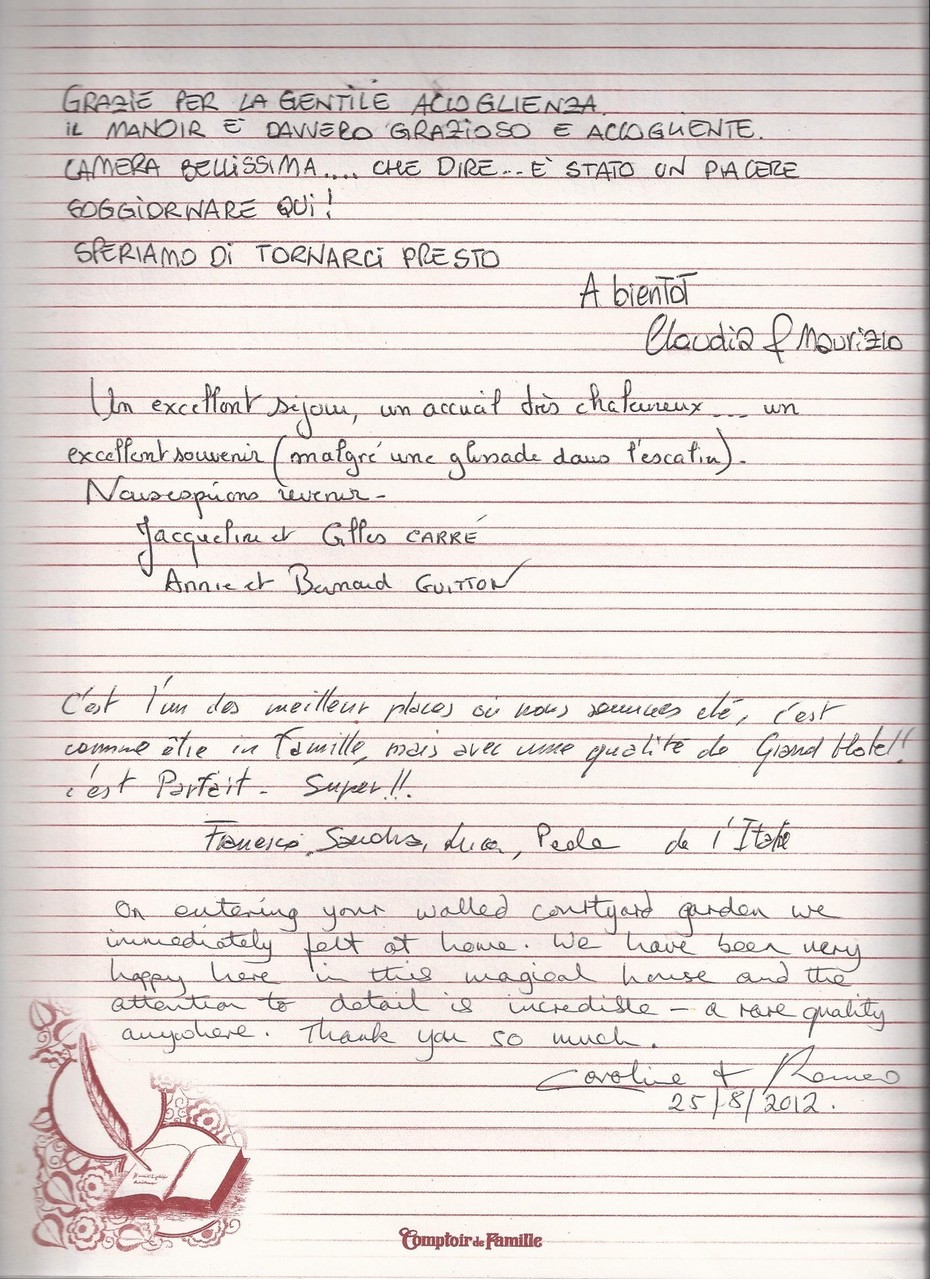 GRAZIE PER LA GENTILE ACCOGLIENZA.
IL MANOIR E' DAVVERO GRAZIOSO E ACCOGLIENTE.
CAMERA BELLISSIMA.... CHE DIRE... E' STATO UN PIACERE
SOGGIORNARE QUI!
SPERIAMO DI TORNARCI PRESTO
A bientot
Claudia & Maurizio
Un excellent séjour, un accueil très chaleureux.... un
excellent souvenir (malgré une glissade dans l'escalier).
Nous espérons revenir -
Jacqueline et Gilles CARRÉ
Annie et Bernard GUITTON
C'est l'un des meilleur places où nous sommes été, c'est
comme être in Famille, mais avec une qualité de Grand Hotel!
c'est Parfait - Super!!.
Francesco, Sandra, Luca, Paola de l'Italie
On entering your walled courtyard garden we
immediately felt at home. We have been very
happy here in this magical house and the
attention to detail is incredible – a rare quality
anywhere. Thank you so much.
Caroline + Romeo
25/8/2012.
Comptoir de Famille